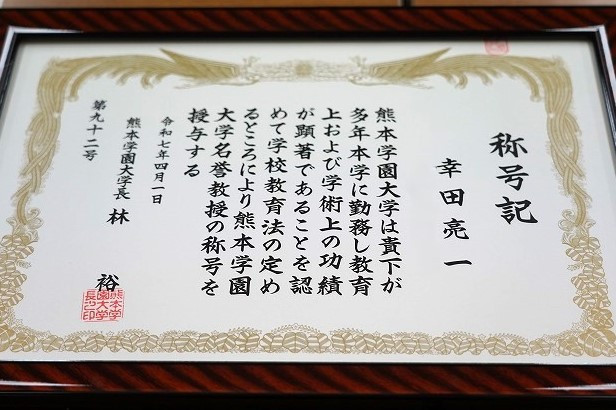 称号記
幸田亮一
熊本学園大学は貴下が
多年本学に勤務し教育
上および学術上の功績
が顕著であることを認
めて学校教育法の定め
るところにより熊本学園
大学名誉教授の称号を
授与する
令和七年四月一日
熊本学園大学長 林 裕
熊本学
園大学
長之印
第九十二号